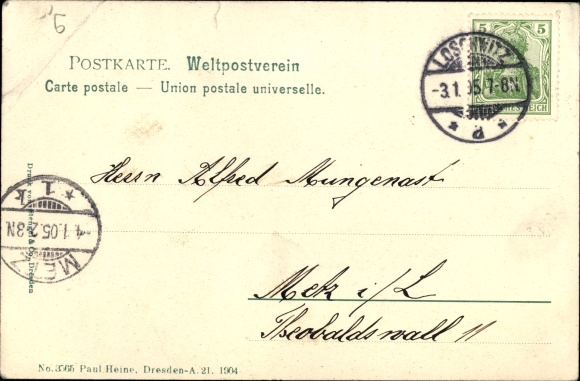 5
POSTKARTE. Weltpostverein
Carte postale — Union postale universelle.
5 5
REICH
LOSCHWITZ
-3.1.05.7-8N.
* d *
Herrn Alfred Mungenast
Metz i/L
Theobaldswall 11
METZ
4.1.05.7-8N
* 1 k
Druck von Stengel & Co., Dresden
No. 3565 Paul Heine, Dresden-A. 21. 1904